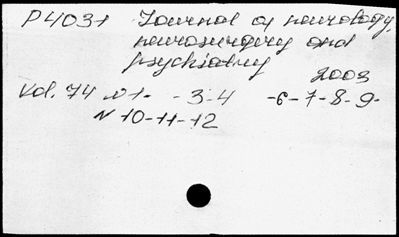 P4031 Journal of neurology,
neurosurgery and
psychiatry
2003
Vol. 74 N 1- -3-4 -6-7-8-9-
N 10-11-12